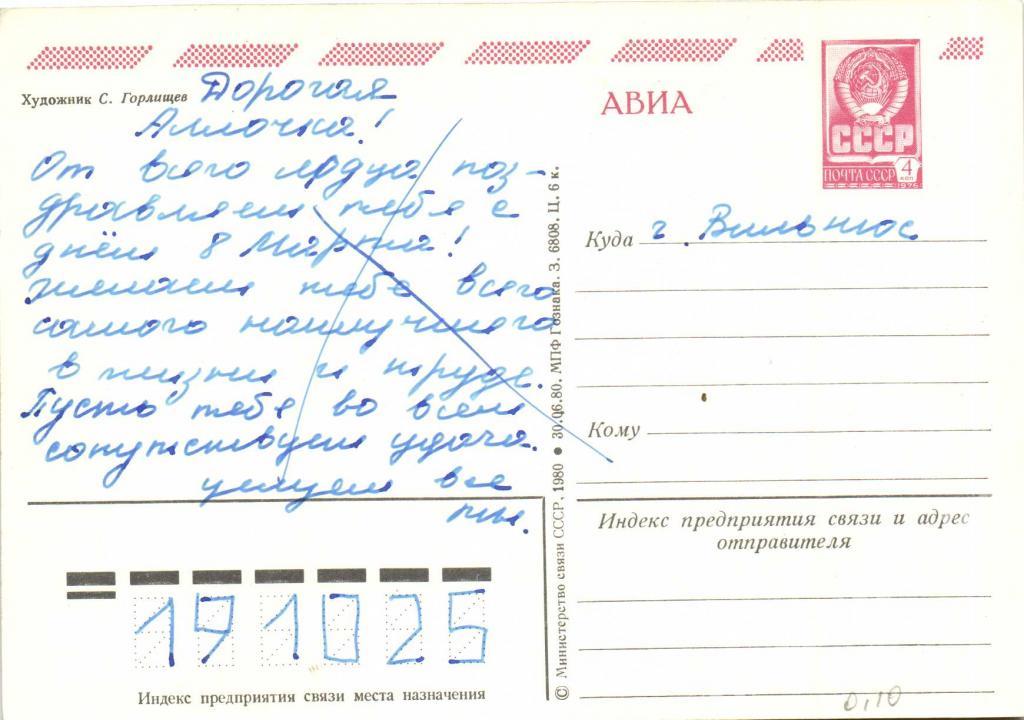 Художник С. Горлищев
Дорогая
Аллочка!
От всего сердца поз-
дравляем тебя с
днём 8 Марта!
желаем тебе всего
самого наилучшего
в жизни и труде.
Пусть тебе во всем
сопутствует удача.
целуем все
мы.
191025
Индекс предприятия связи места назначения
© Министерство связи СССР, 1980 ● 30.06.80. МПФ Гознака. З. 6808. Ц. 6 к.
АВИА
СССР
ПОЧТА СССР 4 коп
1976
Куда г. Вильнюс
Кому
Индекс предприятия связи и адрес
отправителя
0,10